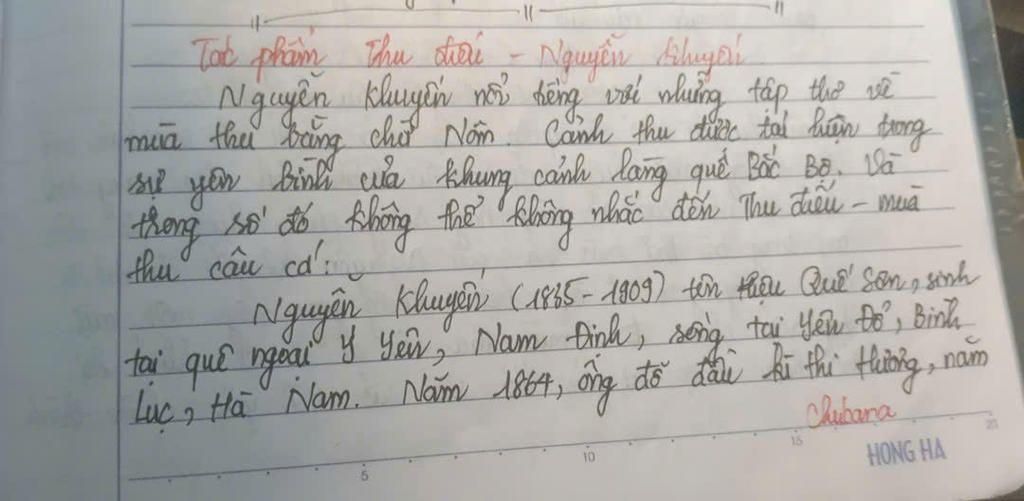 Tác phẩm Thu điếu - Nguyễn Khuyến
Nguyễn Khuyến nổi tiếng với những tập thơ về
mùa thu bằng chữ Nôm. Cảnh thu được tái hiện trong
sự yên bình của khung cảnh làng quê Bắc Bộ. Và
trong số đó không thể không nhắc đến Thu điếu - mùa
thu câu cá.
Nguyễn Khuyến (1835 - 1909) tên hiệu Quế Sơn, sinh
tại quê ngoại Ý Yên, Nam Định, sống tại Yên Đổ, Bình
Lục, Hà Nam. Năm 1864, ông đỗ đầu kì thi Hương, năm
Chubana
5 10 15 20
HONG HA